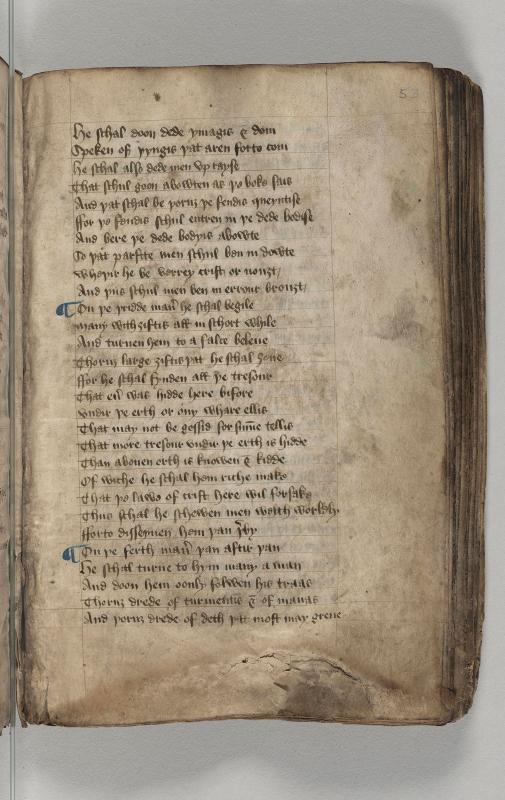 53
He schal doon dede ymagis & dom
Speken of þyngis þat aren forto com
He schal also dede men vp rayse
That schul goon abowten as þo boke sais
And þat schal be þoruȝ þe fendis queyntise
ffor þo fendis schul entren in þe dede bodise
And bere þe dede bodyis abowte
So þat parfite men schul ben in dowte
Wheþir he be verrey crist or nouȝt /
And þus schul men ben in errour brouȝt /
¶ On þe þridde man̅ he schal begile
many with ȝiftis all in schort while
And turnen hem to a false beleue
Thoruȝ large ȝiftis þat he schal ȝeue
ffor he schal fynden all þe tresour
That eu̅ was hidde here bifore
vndir þe erth or ony whare ellis
That may not be gessid for su̅me tellis
That more tresour vndir þe erth is hidde
Than abouen erth is knowen & kidde
Of wiche he schal hem riche make
That þo lawe of crist here wil forsake
Thus schal he schewen men welth worldly
fforto disseyuen hem þan þ̅by
¶ On þe ferth man̅ þan aftir þan
He schal turne to hym many a man
And doon hem oonly folwen his traas
Thoruȝ drede of turmentis & of manas
And þoruȝ drede of deth þat most may greue